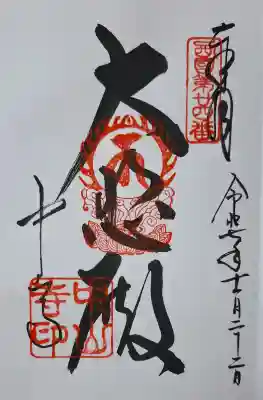 奉拝
西国第廿四番
令和六年十二月二十二日
大悲殿
中山寺
中山寺印